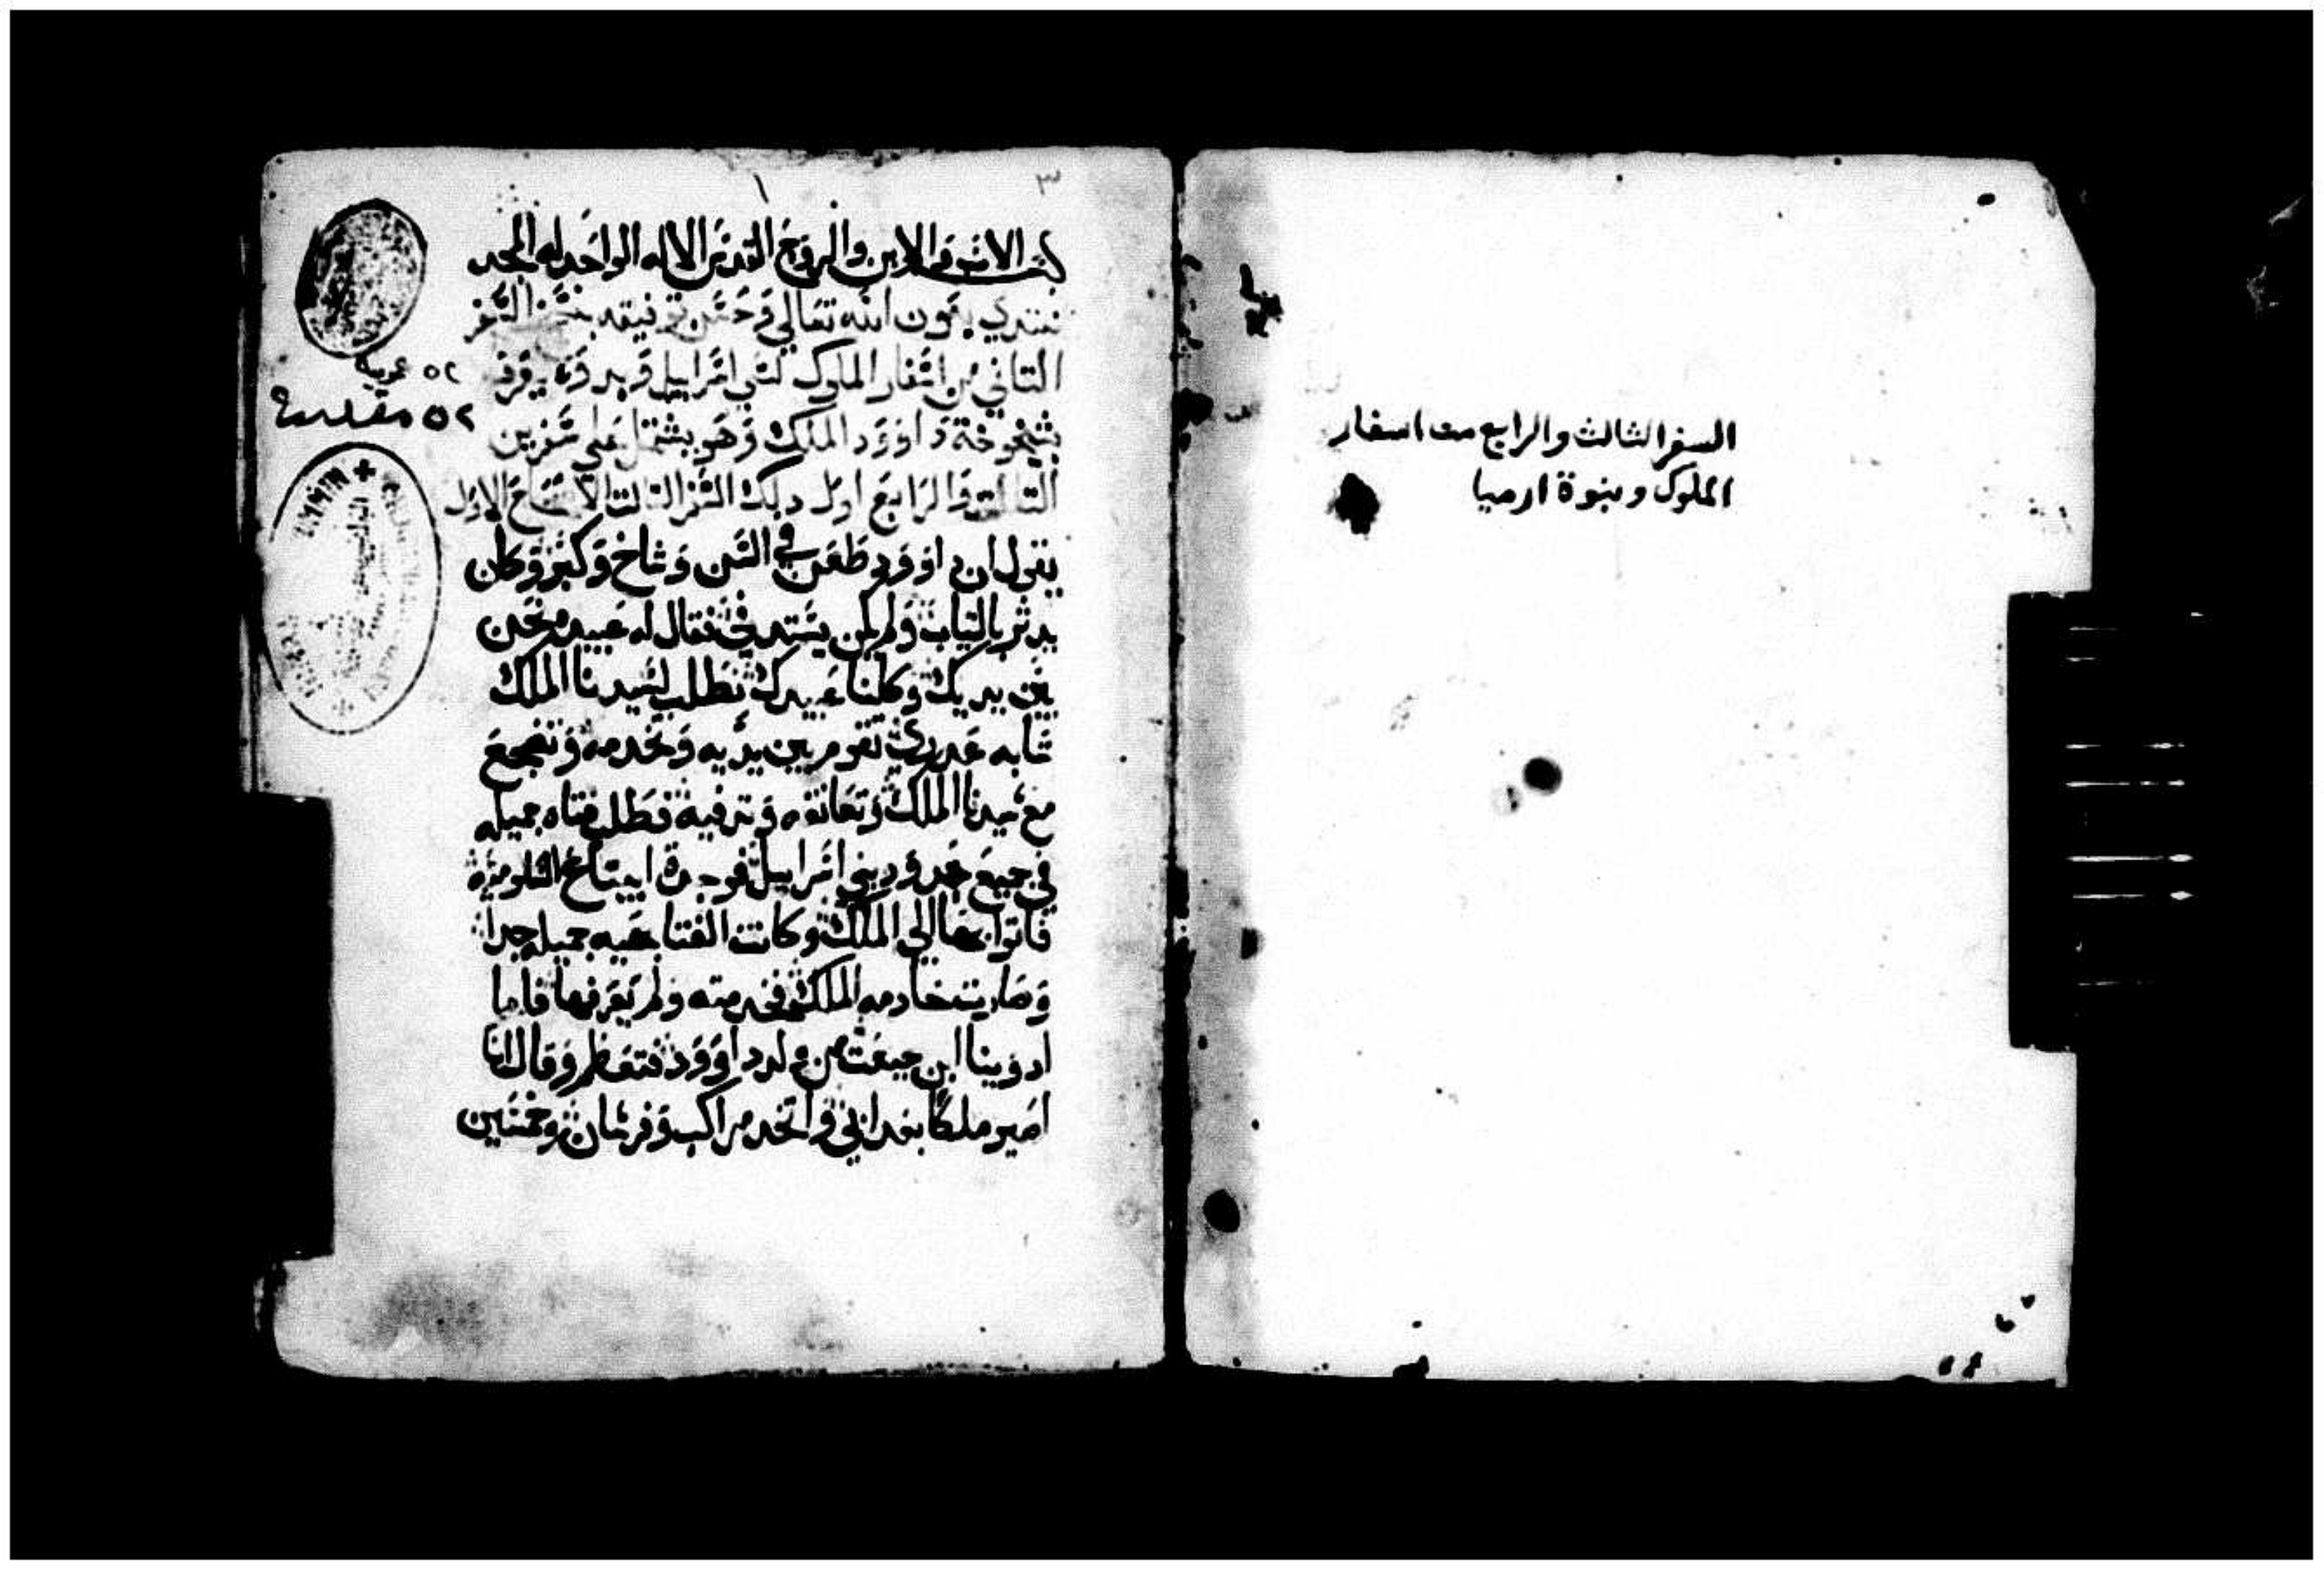 السفر الثالث والرابع من اسفار
الملوك ونبوة ارميا
٣
١
بسم الاب والابن والروح القدس الاله الواحد له المجد
نبتدي بعون الله تعالي وحسن توفيقه بنسخ السفر
التاني من اسفار الملوك لبني اسراييل
بشيخوخة داوود الملك وهو يشتمل على سفرين
التالت والرابع اول دلك السفر التالت الاصحاح الاول
يقول ان داوود طعن في السن وشاخ وكبر وكان
يدثر بالتياب ولم يكن يستدفي فقال له عبيده نحن
بين يديك وكلنا عبيدك نطلب لسيدنا الملك
شابه عدري تقوم بين يديه وتخدمه وتضجع
مع سيدنا الملك وتعانقه وتدفيه فطلب فتاه جميله
في جميع حدود بني اسراييل فوجدة ابيشاغ الشلومية
فاتوا بها الي الملك وكانت الفتا بهيه جميله جدا
وصارت خادمه الملك فخدمته ولم يعرفها فاما
ادونيا ابن حيعت من ولد داوود فتعظم وقال انا
اصير ملكا بعد ابي واتخد مراكب وفرسان وخمسين
٥٢ عربية
٥٢ مقدسة